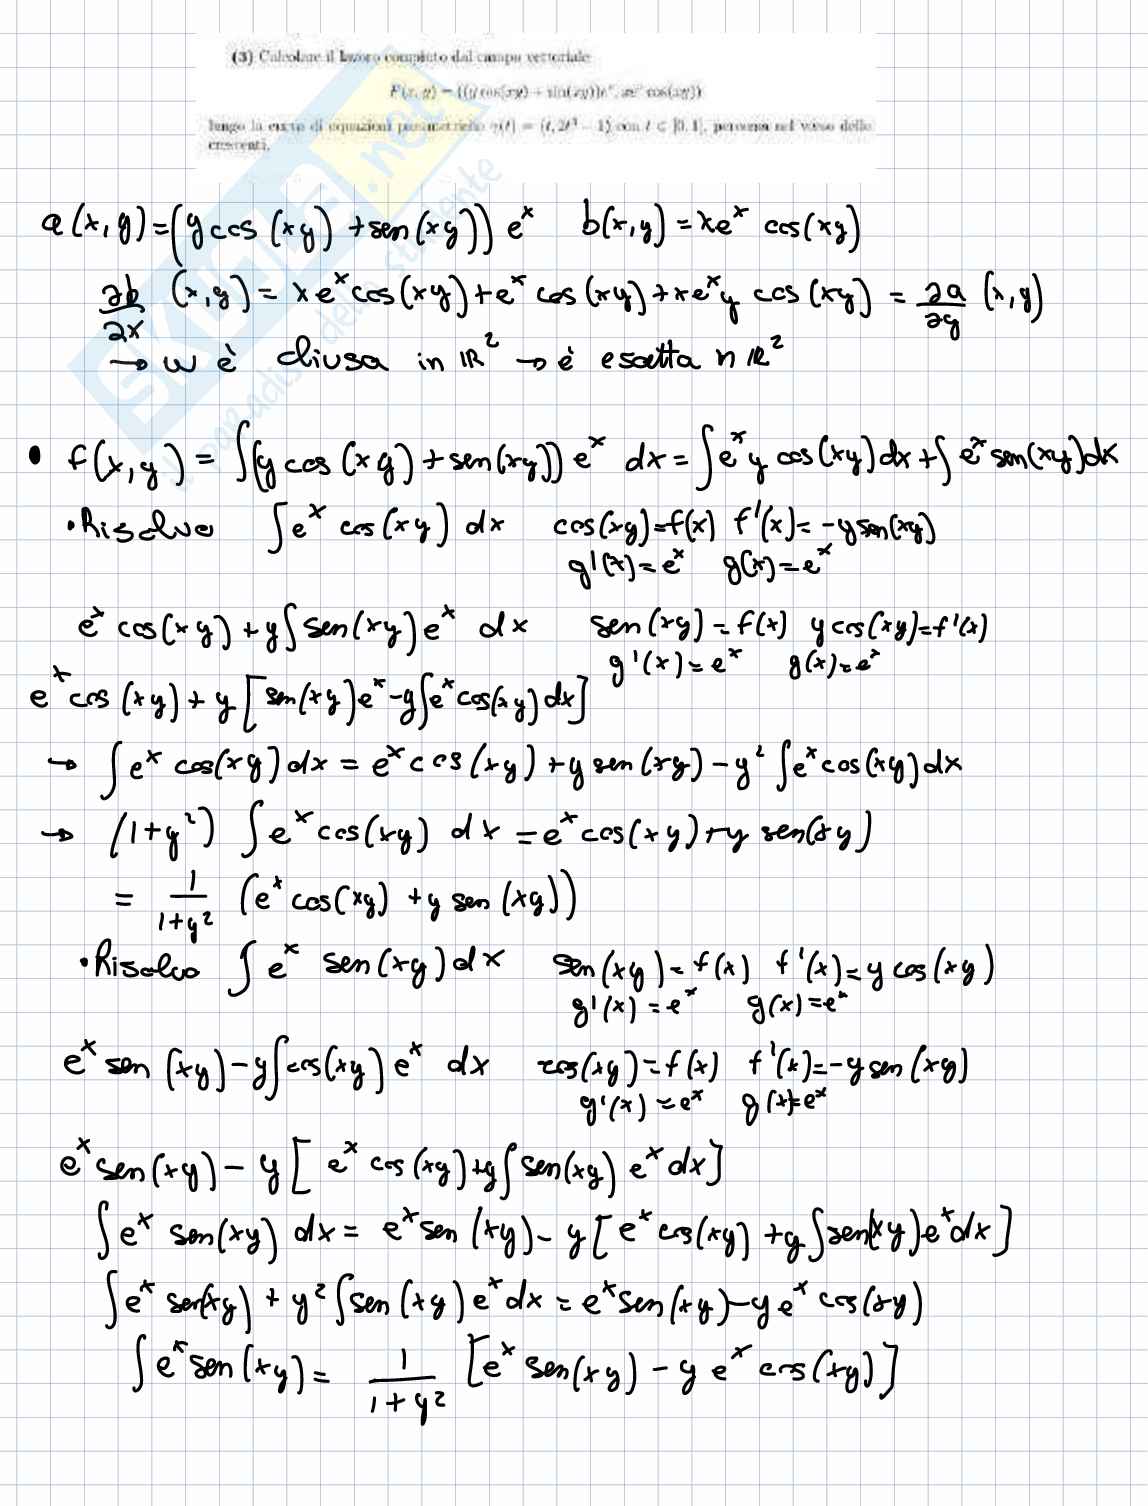 (3) Calcolare il lavoro compiuto dal campo vettoriale
F(x, y) = ((y cos(xy) + sin(xy))eˣ, xeˣ cos(xy))
lungo la curva di equazioni parametriche γ(t) = (t, 2t³ − 1) con t ∈ [0, 1], percorsa nel verso delle
crescenti.
a(x,y)=(y cos(xy)+sen(xy)) eˣ b(x,y)=xeˣ cos(xy)
∂b/∂x (x,y) = xeˣcos(xy)+eˣ cos(xy)+xeˣy cos(xy) = ∂a/∂y (x,y)
→ w è chiusa in ℝ² → è esatta n ℝ²
• f(x,y) = ∫(y cos(xy)+sen(xy)) eˣ dx = ∫eˣy cos(xy)dx+∫eˣsen(xy)dx
• Risolvo ∫eˣ cos(xy) dx cos(xy)=f(x) f'(x)=-y sen(xy)
g'(x)=eˣ g(x)=eˣ
eˣ cos(xy)+y∫sen(xy)eˣ dx sen(xy)=f(x) y cos(xy)=f'(x)
g'(x)=eˣ g(x)=eˣ
eˣcos(xy)+y[sen(xy)eˣ-y∫eˣcos(xy)dx]
→ ∫eˣ cos(xy)dx = eˣcos(xy)+y sen(xy)-y² ∫eˣcos(xy)dx
→ (1+y²) ∫eˣcos(xy) dx = eˣcos(xy)+y sen(xy)
= 1/(1+y²) (eˣcos(xy)+y sen(xy))
• Risolvo ∫eˣ sen(xy)dx sen(xy)=f(x) f'(x)=y cos(xy)
g'(x)=eˣ g(x)=eˣ
eˣ sen(xy)-y∫cos(xy)eˣ dx cos(xy)=f(x) f'(x)=-y sen(xy)
g'(x)=eˣ g(x)=eˣ
eˣsen(xy)-y[eˣ cos(xy)+y∫sen(xy) eˣdx]
∫eˣ sen(xy) dx = eˣsen(xy)-y[eˣcos(xy)+y∫sen(xy)eˣdx]
∫eˣ sen(xy)+y²∫sen(xy)eˣdx = eˣsen(xy)-yeˣ cos(xy)
∫eˣsen(xy)= 1/(1+y²) [eˣ sen(xy)-y eˣ cos(xy)]
SKUOLA.net